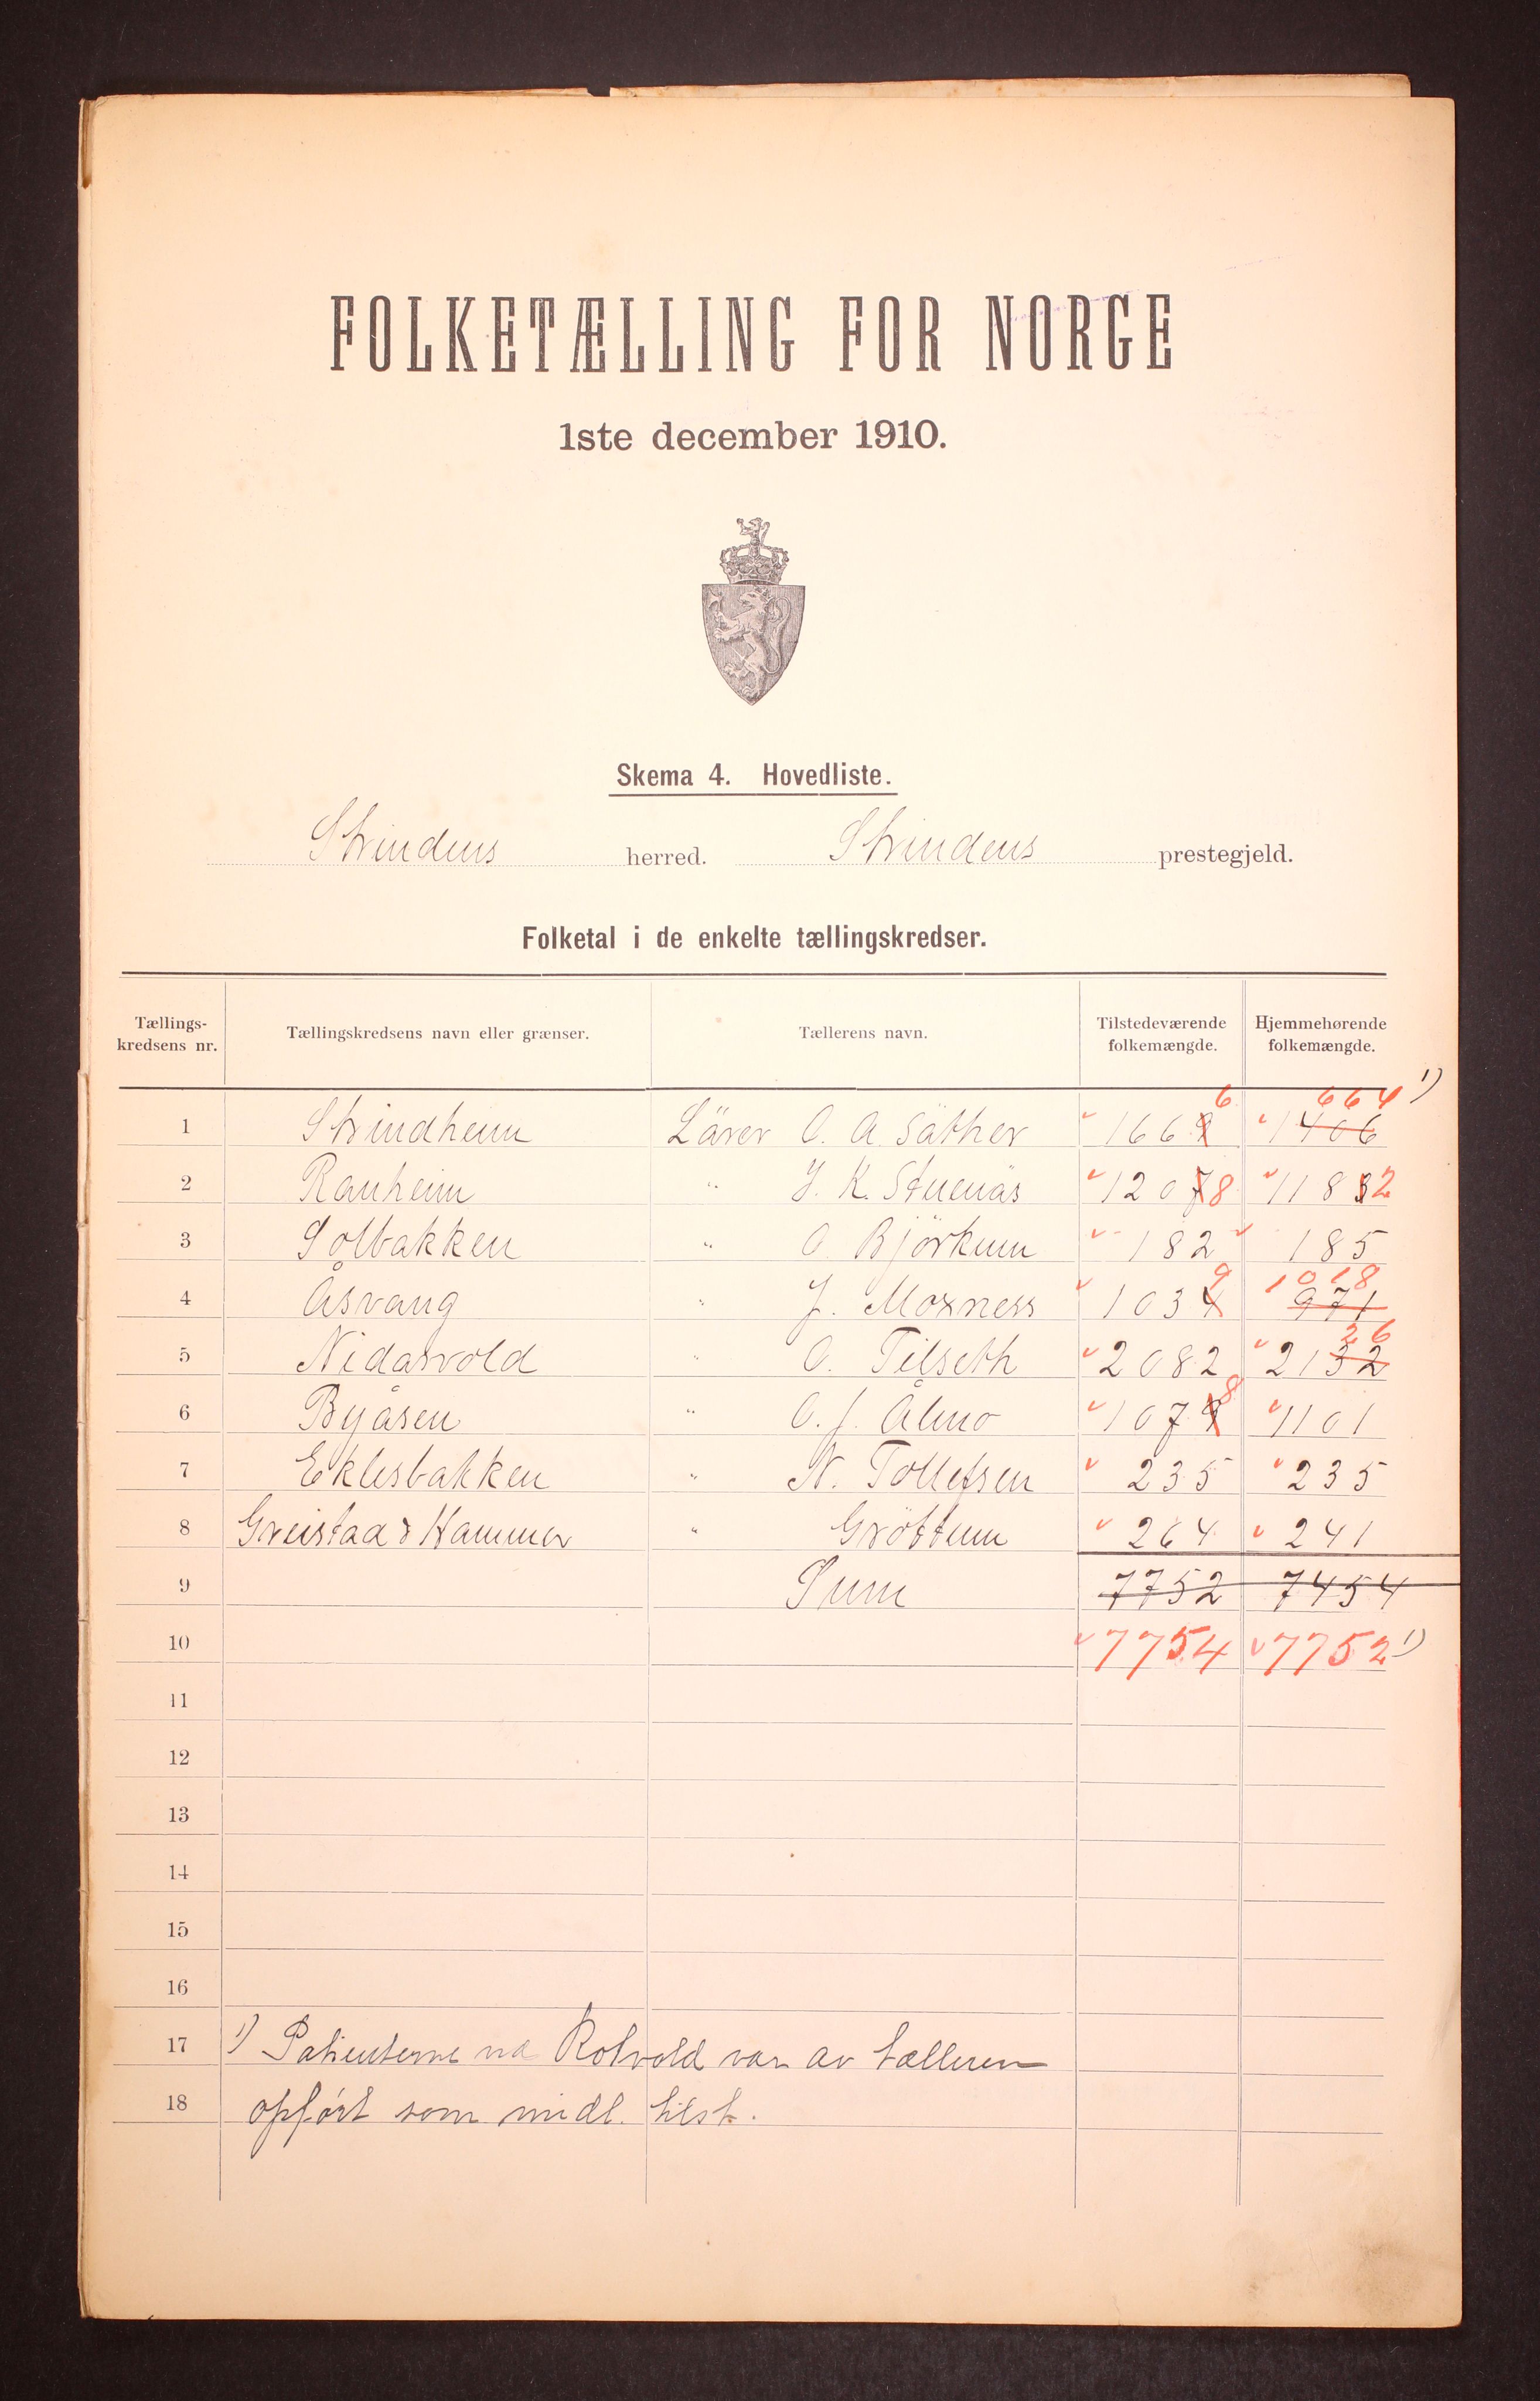 FOLKETÆLLING FOR NORGE
1ste december 1910.
Skema 4. Hovedliste.
Strindens herred. Strindens prestegjeld.
Folketal i de enkelte tællingskredser.
Tællings-kredsens nr. Tællingskredsens navn eller grænser. Tællerens navn. Tilstedeværende folkemængde. Hjemmehørende folkemængde.
6 664 1)
1 Strindheim Lärer O. A. Säther 1669 1406
2 Ranheim " J. K. Stuenäs 12078 11832
3 Solbakken " O. Björkum 182 185
9 1018
4 Åsvang " J. Moxness 1034 971
26
5 Nidarvold " O. Tilseth 2082 2132
8
6 Byåsen " O. J. Ålmo 1079 1101
7 Eklesbakken " N. Tollefsen 235 235
8 Greistad & Hammer " Gröttum 264 241
9 Sum 7752 7454
10 7754 7752 1)
11
12
13
14
15
16
17 1) Patienterne på Rotvold var av tælleren
18 opført som midl. tilst.